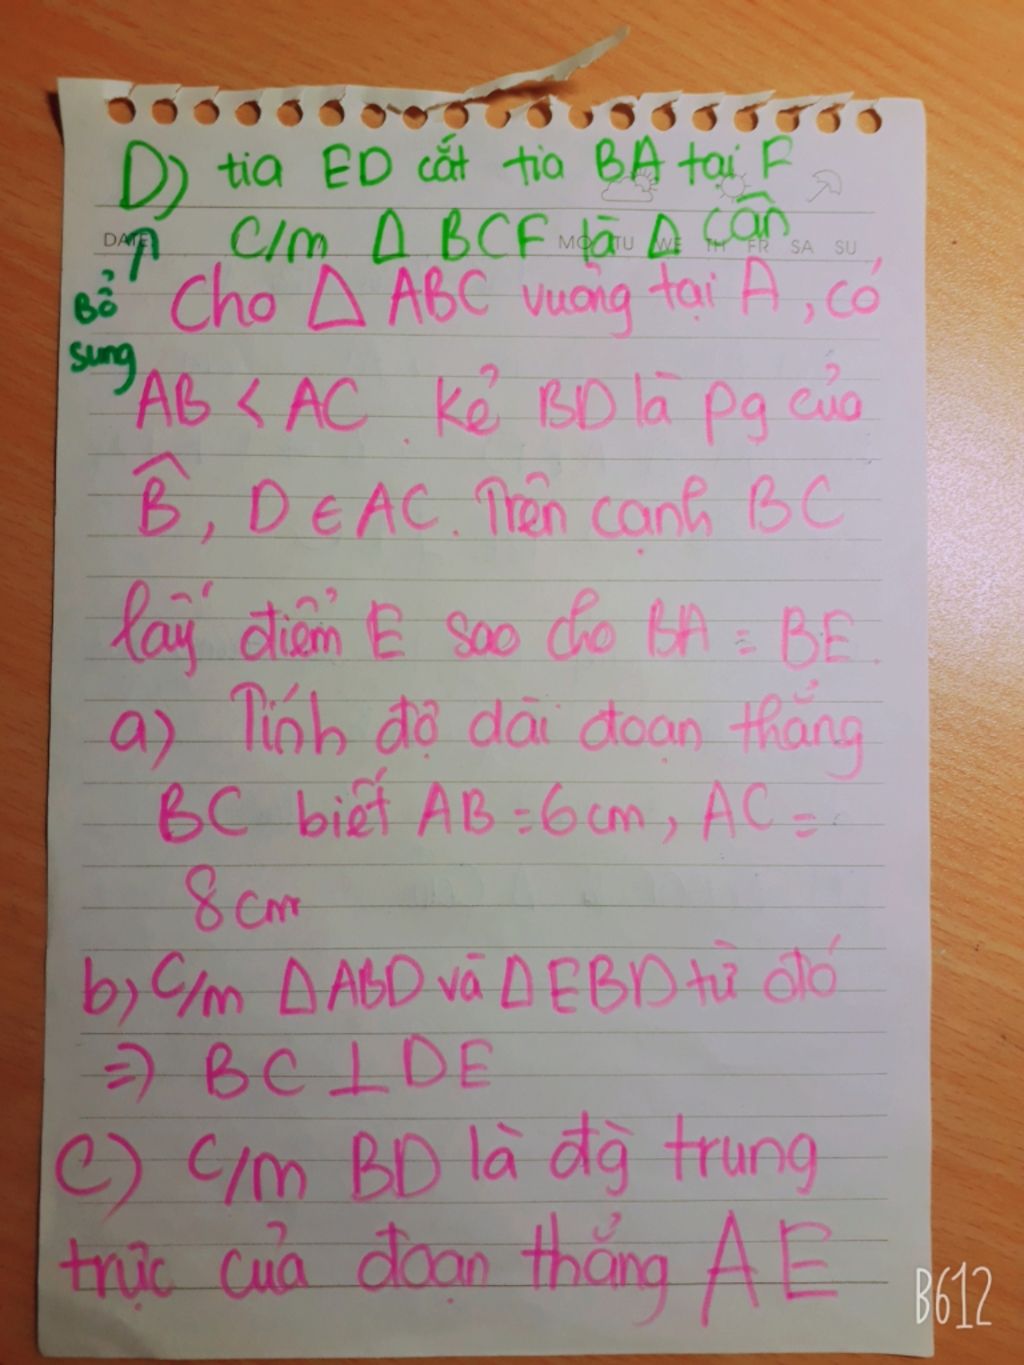 D) tia ED cắt tia BA tại F
C/m Δ BCF là Δ cân
DATE MO TU WE TH FR SA SU
Bổ sung
Cho Δ ABC vuông tại A, có
AB < AC. Kẻ BD là pg của
B̂, D ∈ AC. Trên cạnh BC
lấy điểm E sao cho BA = BE.
a) Tính độ dài đoạn thẳng
BC biết AB = 6cm, AC =
8cm
b) C/m Δ ABD và Δ EBD từ đó
=) BC ⊥ DE
c) C/m BD là đg̀ trung
trực của đoạn thẳng AE
B612